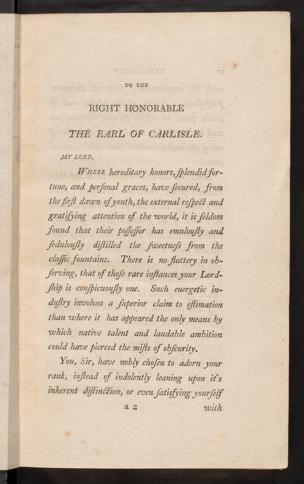 TO THE
RIGHT HONORABLE
THE EARL OF CARLISLE.
MY LORD,
WHERE hereditary honors, ſplendid for-
tune, and perſonal graces, have ſecured, from
the firſt dawn of youth, the external reſpect and
gratifying attention of the world, it is ſeldom
found that their poſſeſſor has emulouſly and
ſedulouſly diſtilled the ſweetneſs from the
claſſic fountains. There is no flattery in ob-
ſerving, that of thoſe rare inſtances your Lord-
ſhip is conſpicuouſly one. Such energetic in-
duſtry involves a ſuperior claim to eſtimation
than where it has appeared the only means by
which native talent and laudable ambition
could have pierced the miſts of obſcurity.
You, Sir, have nobly choſen to adorn your
rank, inſtead of indolently leaning upon it's
inherent diſtinction, or even ſatisfying yourſelf
a 2 with